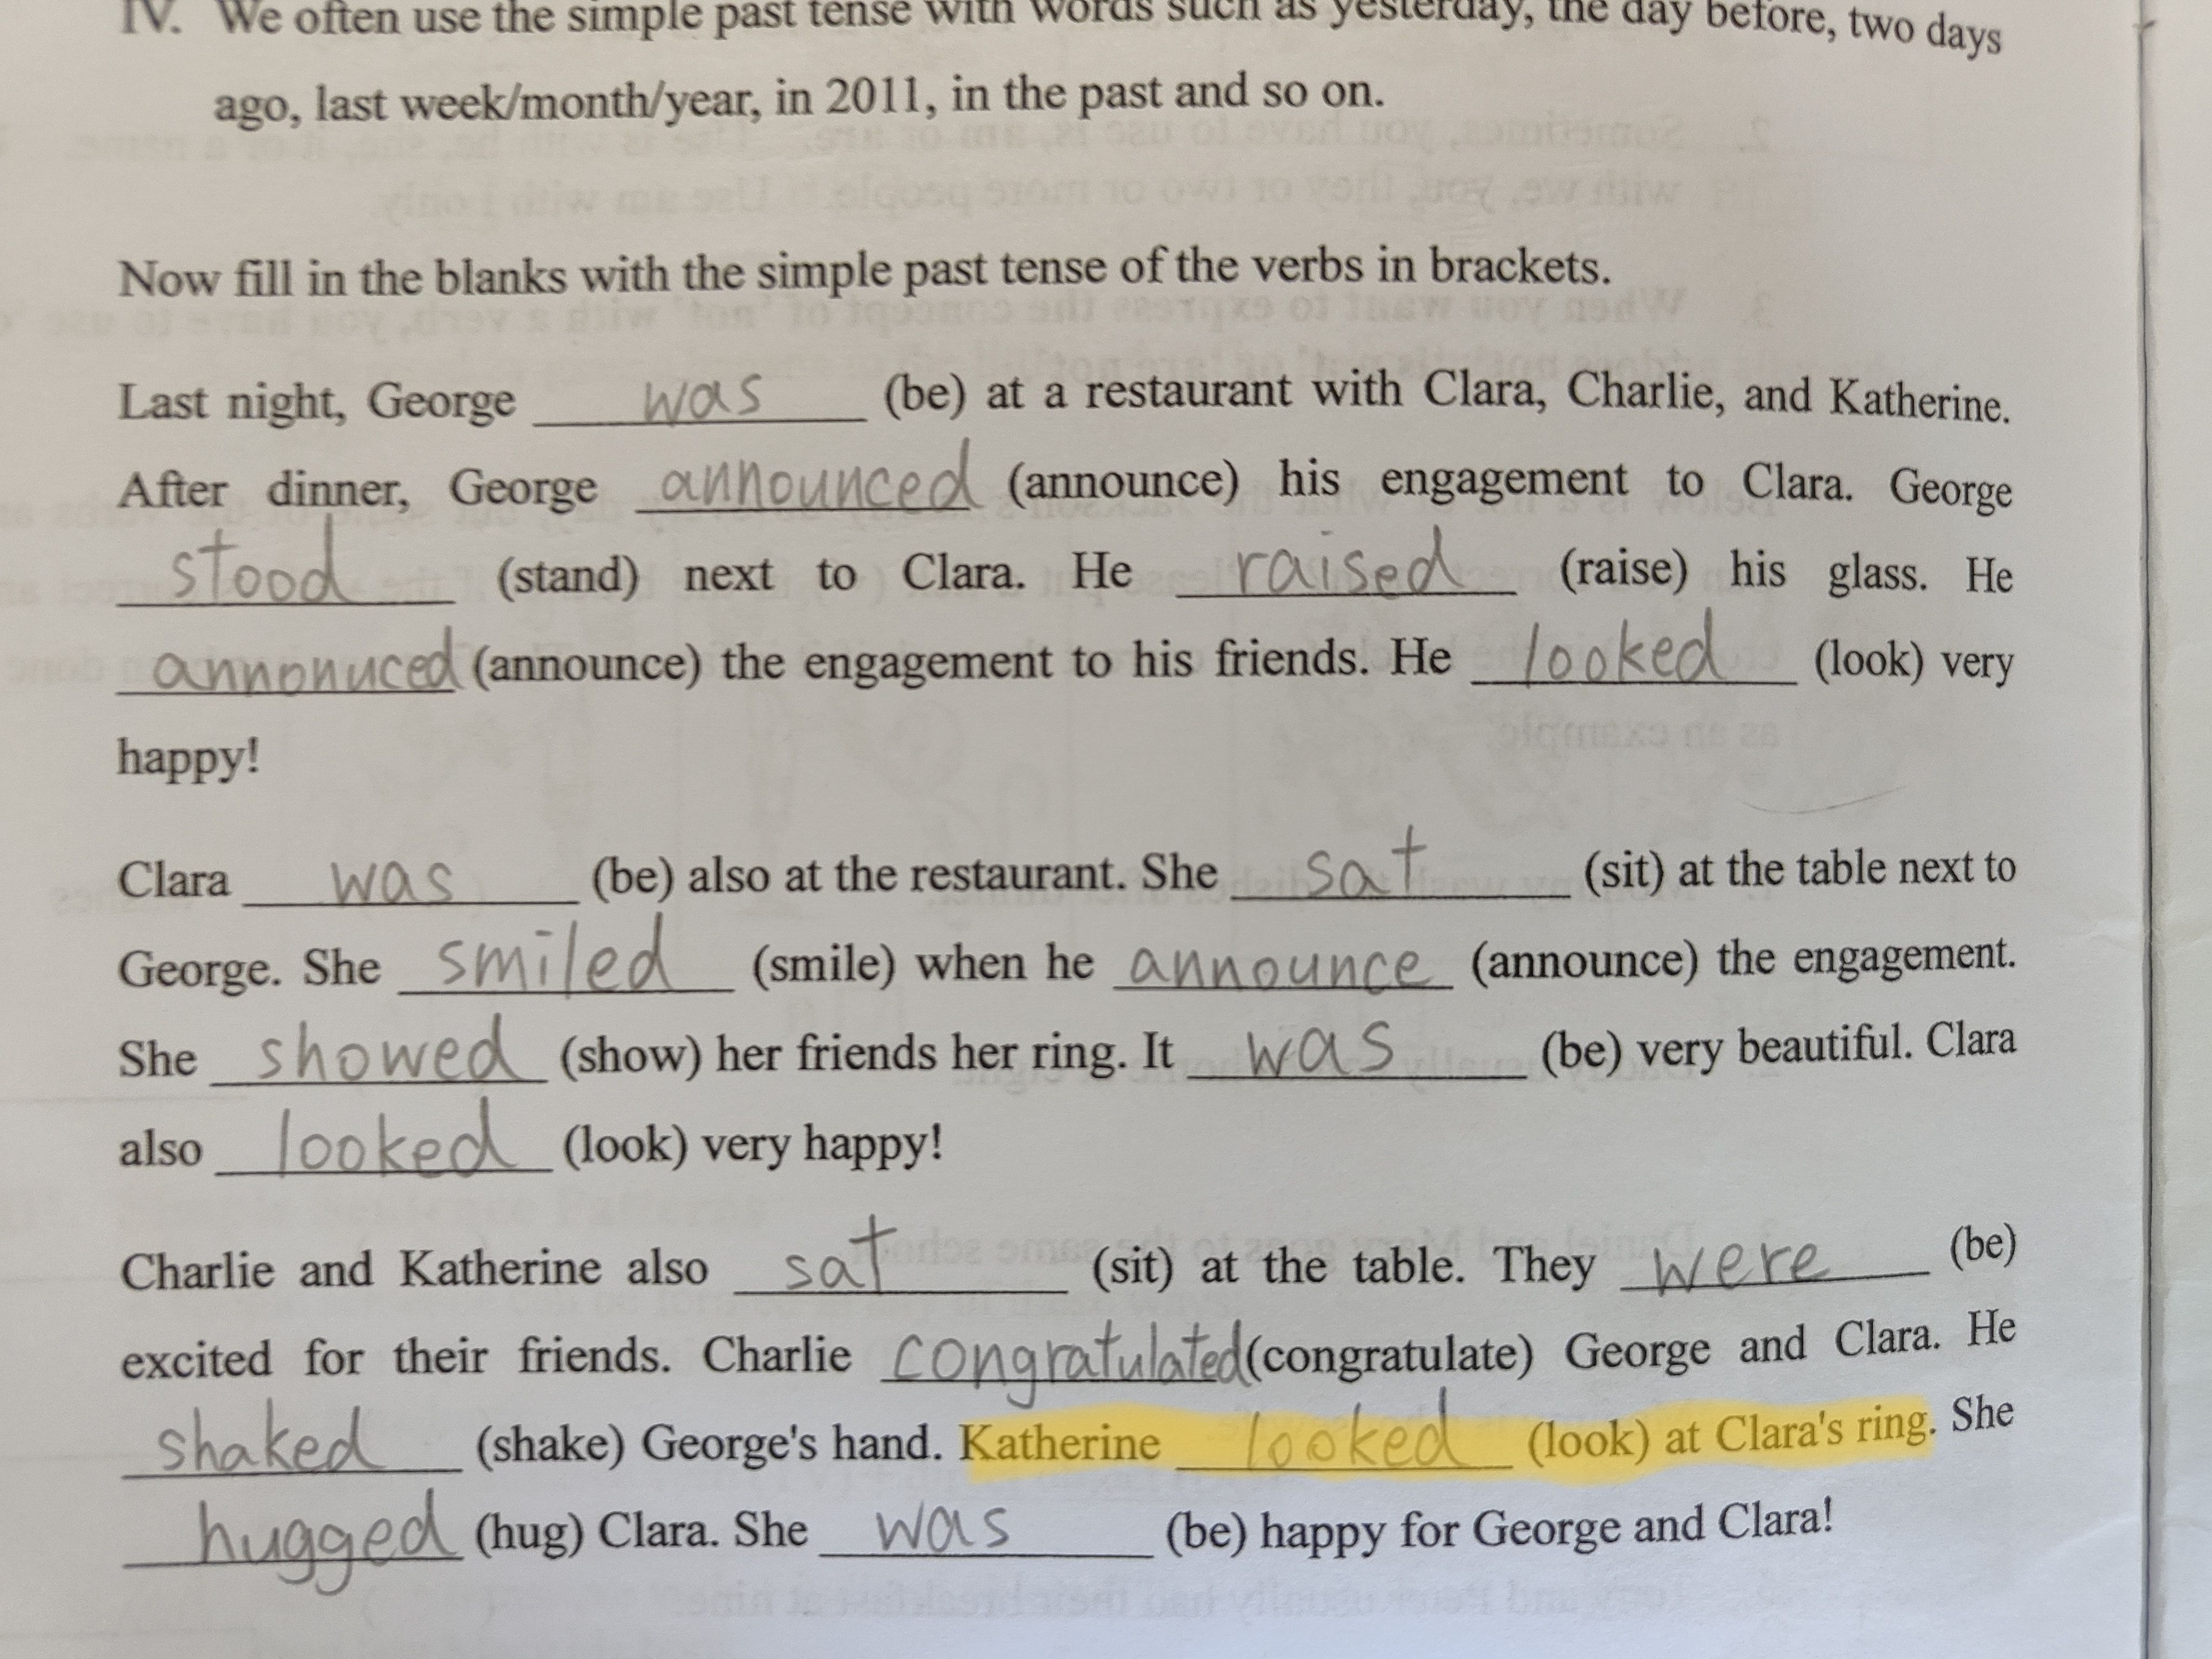 IV. We often use the simple past tense with words such as yesterday, the day before, two days
ago, last week/month/year, in 2011, in the past and so on.
Now fill in the blanks with the simple past tense of the verbs in brackets.
Last night, George was (be) at a restaurant with Clara, Charlie, and Katherine.
After dinner, George announced (announce) his engagement to Clara. George
stood (stand) next to Clara. He raised (raise) his glass. He
annonuced (announce) the engagement to his friends. He looked (look) very
happy!
Clara was (be) also at the restaurant. She sat (sit) at the table next to
George. She smiled (smile) when he announce (announce) the engagement.
She showed (show) her friends her ring. It was (be) very beautiful. Clara
also looked (look) very happy!
Charlie and Katherine also sat (sit) at the table. They were (be)
excited for their friends. Charlie congratulated (congratulate) George and Clara. He
shaked (shake) George's hand. Katherine looked (look) at Clara's ring. She
hugged (hug) Clara. She was (be) happy for George and Clara!